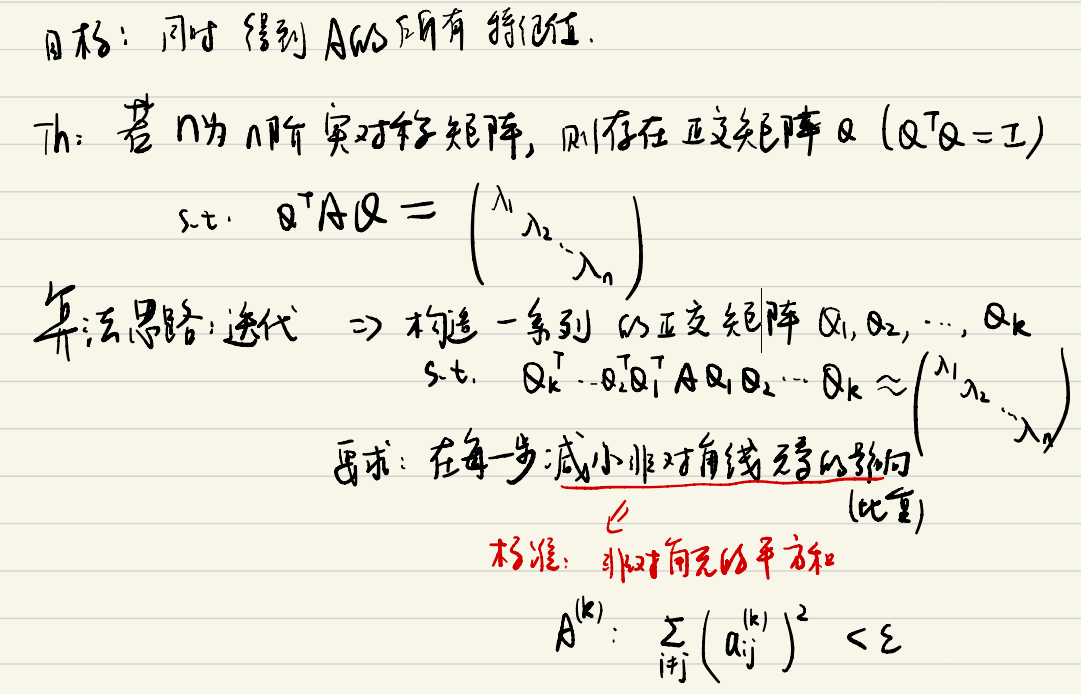 目标: 同时 得到 A的 所有 特征值.
Th: 若 n为 n阶 实对称矩阵, 则存在 正交矩阵 Q (QᵀQ = I)
s.t. QᵀAQ = (λ₁ λ₂ ⋱ λₙ)
算法思路: 迭代 ⇒ 构造 一系列 的正交矩阵 Q₁, Q₂, ⋯, Qₖ
s.t. Qₖᵀ ⋯ Q₂ᵀQ₁ᵀ A Q₁ Q₂ ⋯ Qₖ ≈ (λ₁ λ₂ ⋱ λₙ)
要求: 在每一步减小非对角线元素的影响
(比重)
标准: 非对角元的平方和
A⁽ᵏ⁾: ∑_{i≠j} (a_{ij}^{(k)})² < ε